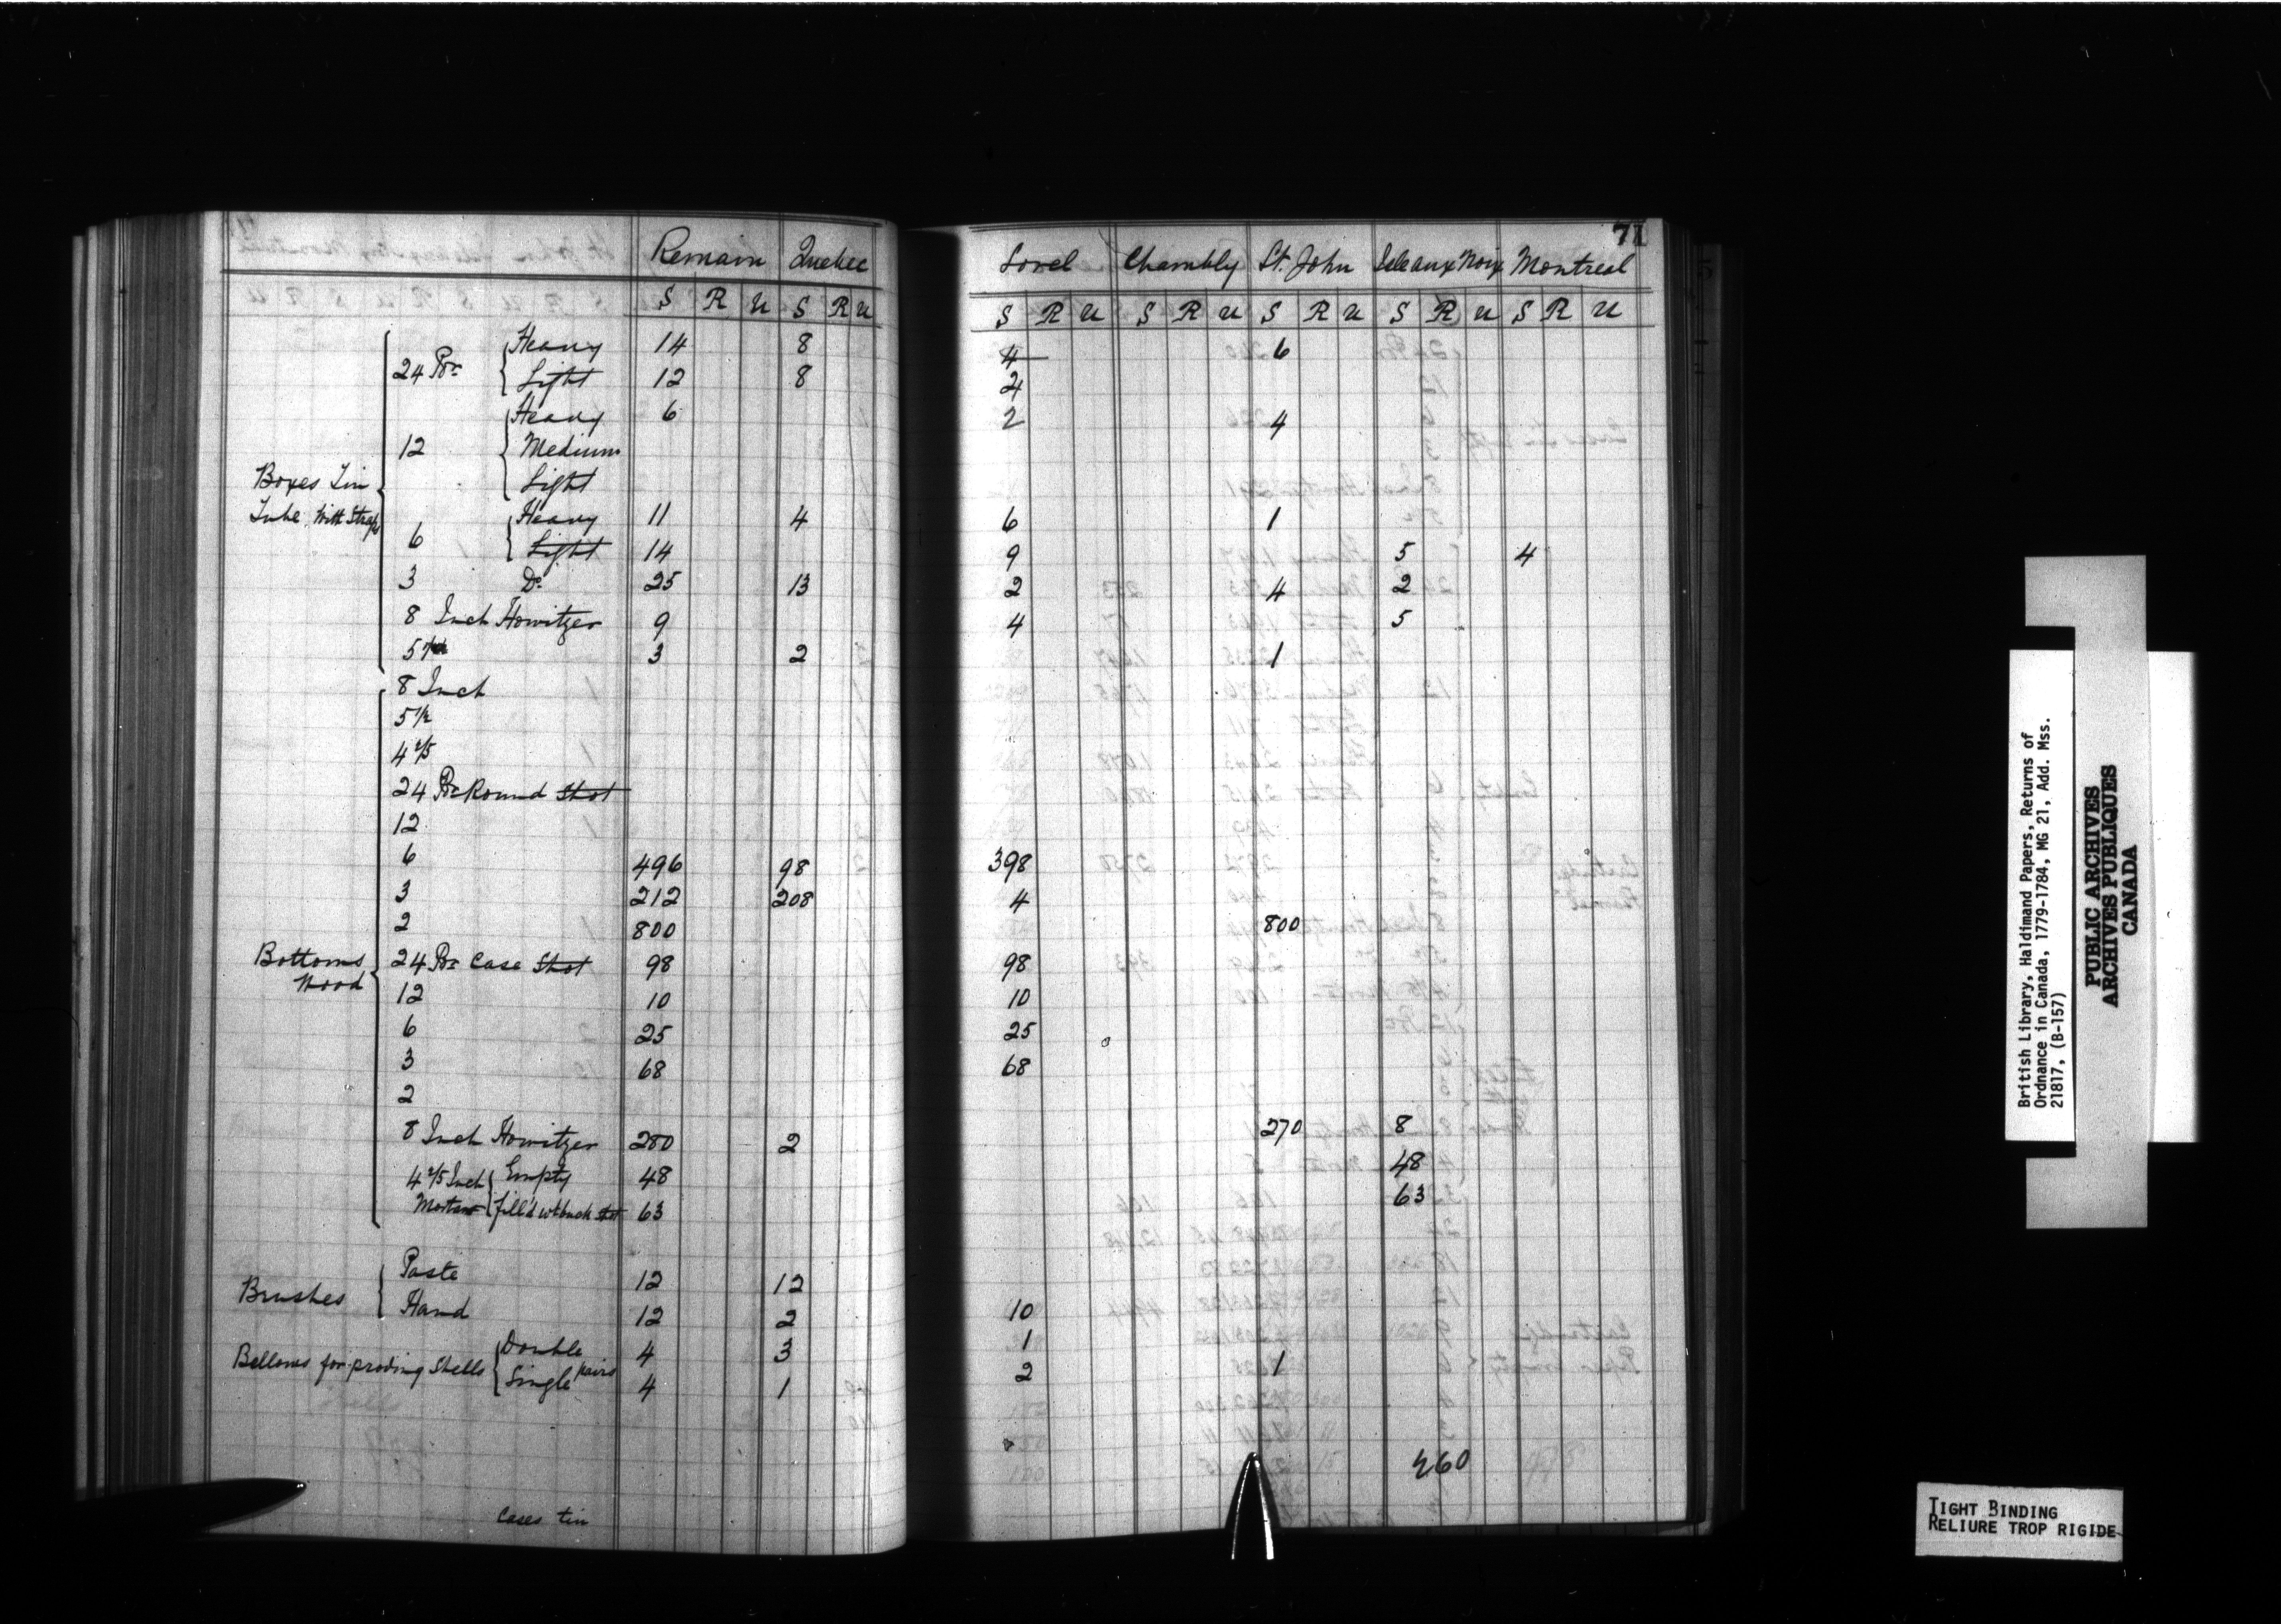 71
Remain Quebec Sorel Chambly St. John Isle aux Noix Montreal
S R U S R U S R U S R U S R U S R U S R U
Boxes Tin Tube With Straps
24 Pdr { Heavy 14 8 4 6
Light 12 8 4
12 { Heavy 6 2 4
Medium
Light
6 { Heavy 11 4 6 1
Light 14 9 5 4
3 Do 25 13 2 4 2
8 Inch Howitzer 9 4 5
5 1/2 3 2 1
Bottoms Wood
8 Inch
5 1/2
4 2/5
24 Pdr Round Shot
12
6 496 98 398
3 212 208 4
2 800 800
24 Pdr Case Shot 98 98
12 10 10
6 25 25
3 68 68
2
8 Inch Howitzer 280 2 270 8
4 2/5 Inch Mortars { Empty 48 48
fill'd wt buck shot 63 63
Brushes { Paste 12 12
Hand 12 2 10
Bellows for proving Shells { Double 4 3 1
Single pairs 4 1 2 1
460
Cases tin
British Library, Haldimand Papers, Returns of
Ordnance in Canada, 1779-1784, MG 21, Add. Mss.
21817, (B-157)
PUBLIC ARCHIVES
ARCHIVES PUBLIQUES
CANADA
TIGHT BINDING
RELIURE TROP RIGIDE